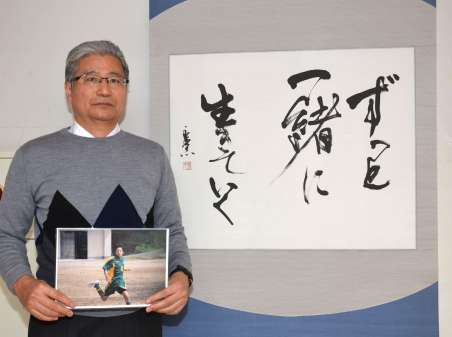 ずっと
一緒に
生きていく